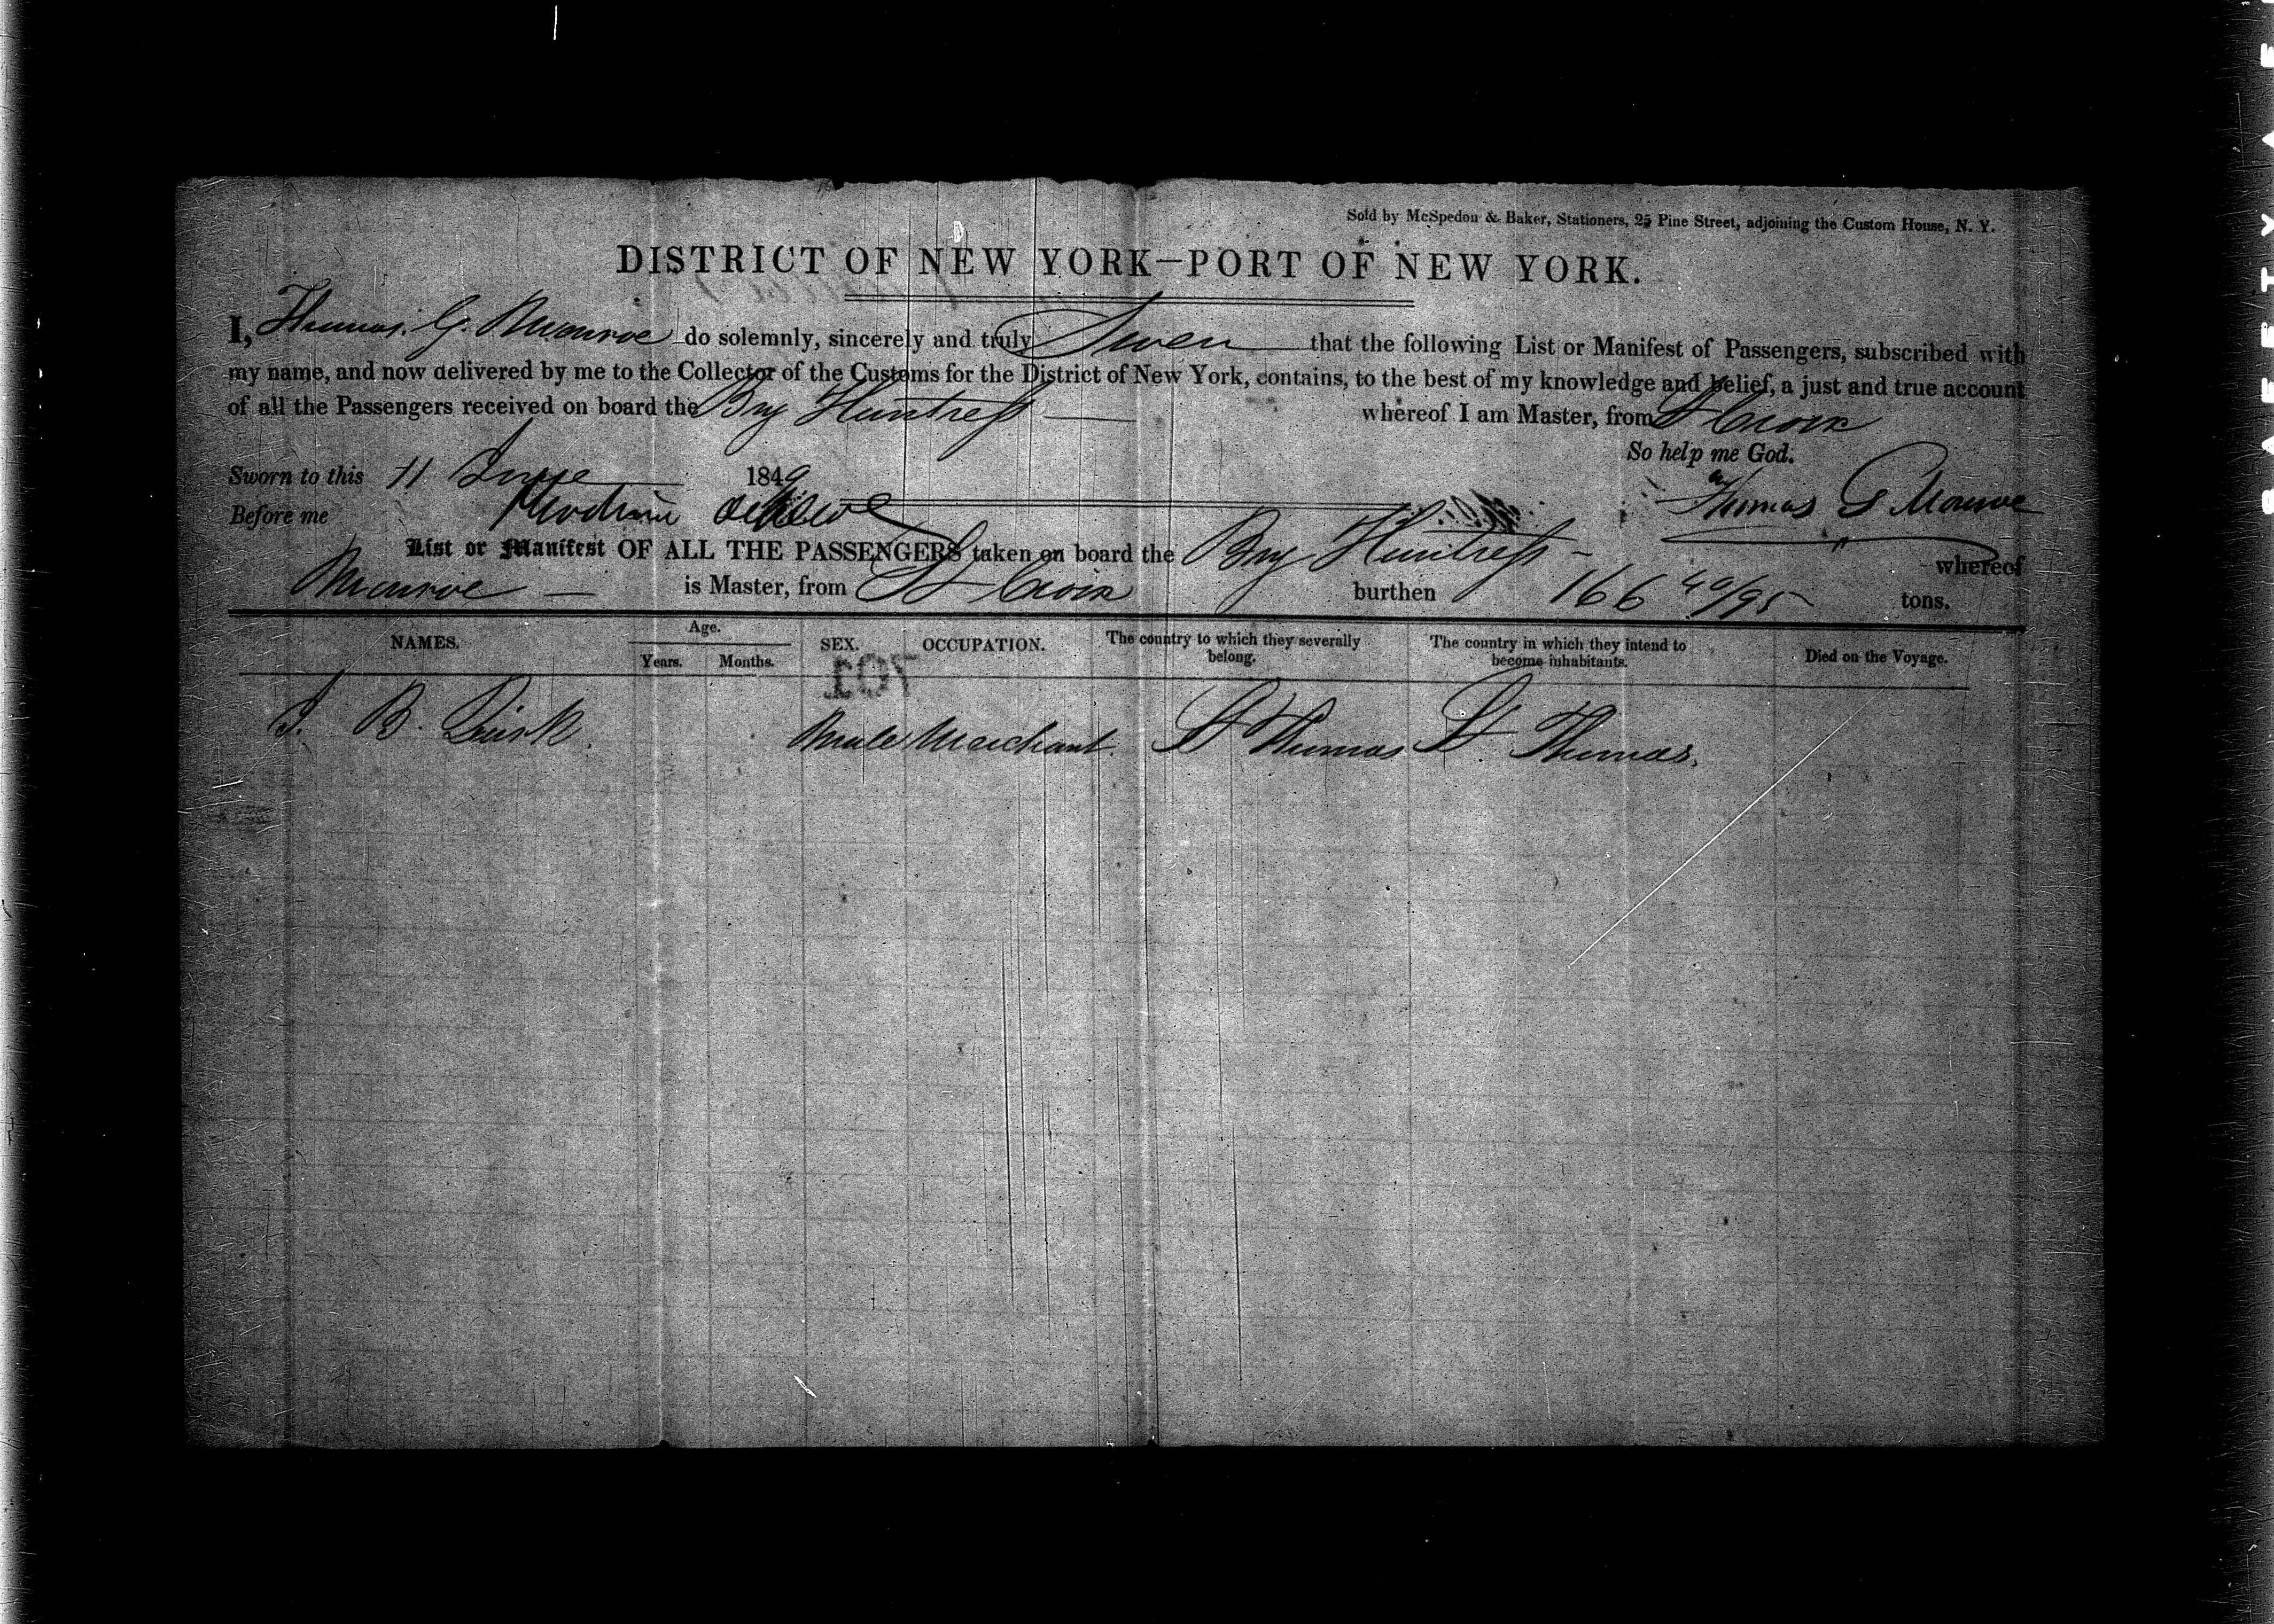 Sold by McSpedon & Baker, Stationers, 25 Pine Street, adjoining the Custom House, N. Y.
DISTRICT OF NEW YORK—PORT OF NEW YORK.
I, Thomas. G. Munroe do solemnly, sincerely and truly Swear that the following List or Manifest of Passengers, subscribed with
my name, and now delivered by me to the Collector of the Customs for the District of New York, contains, to the best of my knowledge and belief, a just and true account
of all the Passengers received on board the Brig Huntress whereof I am Master, from St Croix
So help me God.
Sworn to this 11 June 1849
Thomas G Munroe
Before me
List or Manifest OF ALL THE PASSENGERS taken on board the Brig Huntress whereof
Munroe is Master, from St Croix burthen 166 40/95 tons.
NAMES. Age. Years. Months. SEX. OCCUPATION. The country to which they severally belong. The country in which they intend to become inhabitants. Died on the Voyage.
107
B. Quirk Male Merchant. St Thomas St Thomas.